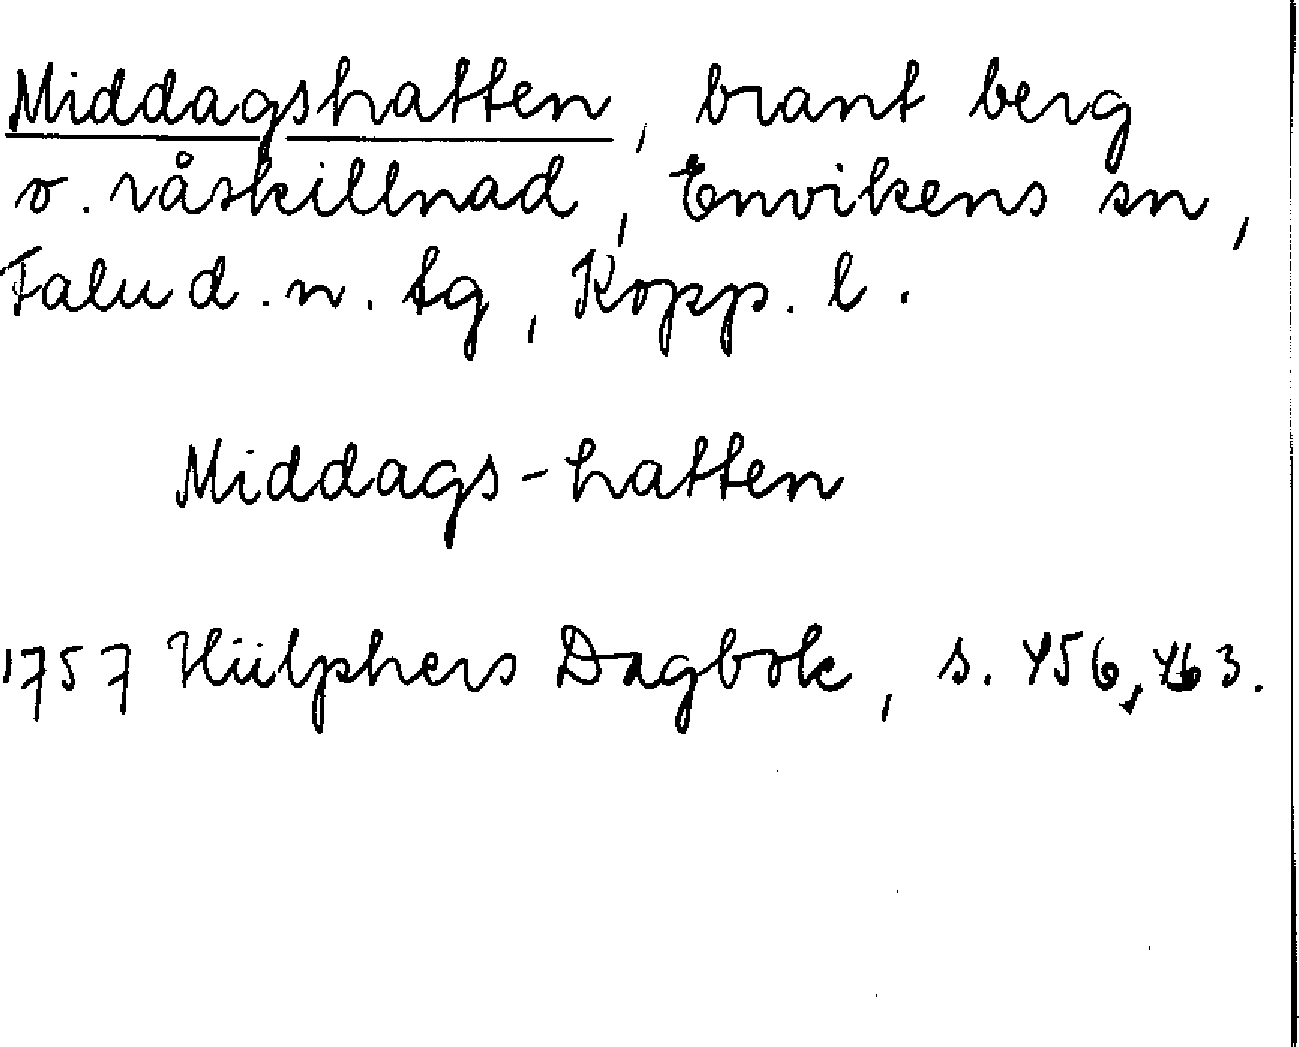 Middagshatten, brant berg
o. råskillnad, Envikens sn,
Falu d. n. tg, Kopp. l.
Middags-hatten
1757 Hülphers Dagbok, s. 456, 463.